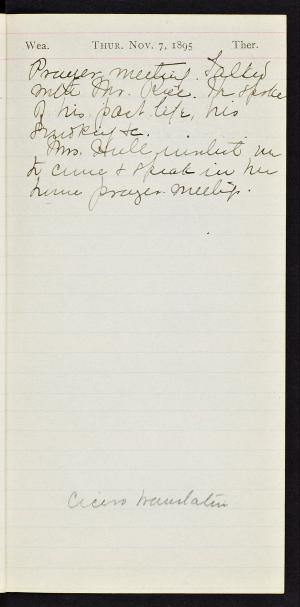 Wea. THUR. NOV. 7, 1895 Ther.
Prayer meeting. Talked
with Mr. Rice. He spoke
of his past life, his
smoking &c.
Mrs. Hull me
to come & speak in her
home prayer meeting.
Cicero translation